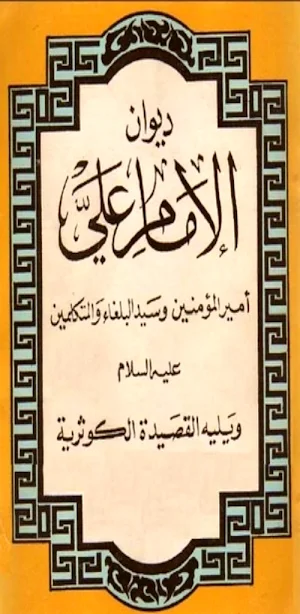 ديوان
الإمام علي
أمير المؤمنين وسيد البلغاء والمتكلمين
عليه السلام
ويليه القصيدة الكوثرية